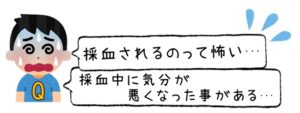 採血されるのって怖い…
採血中に気分が
悪くなった事がある…
Q